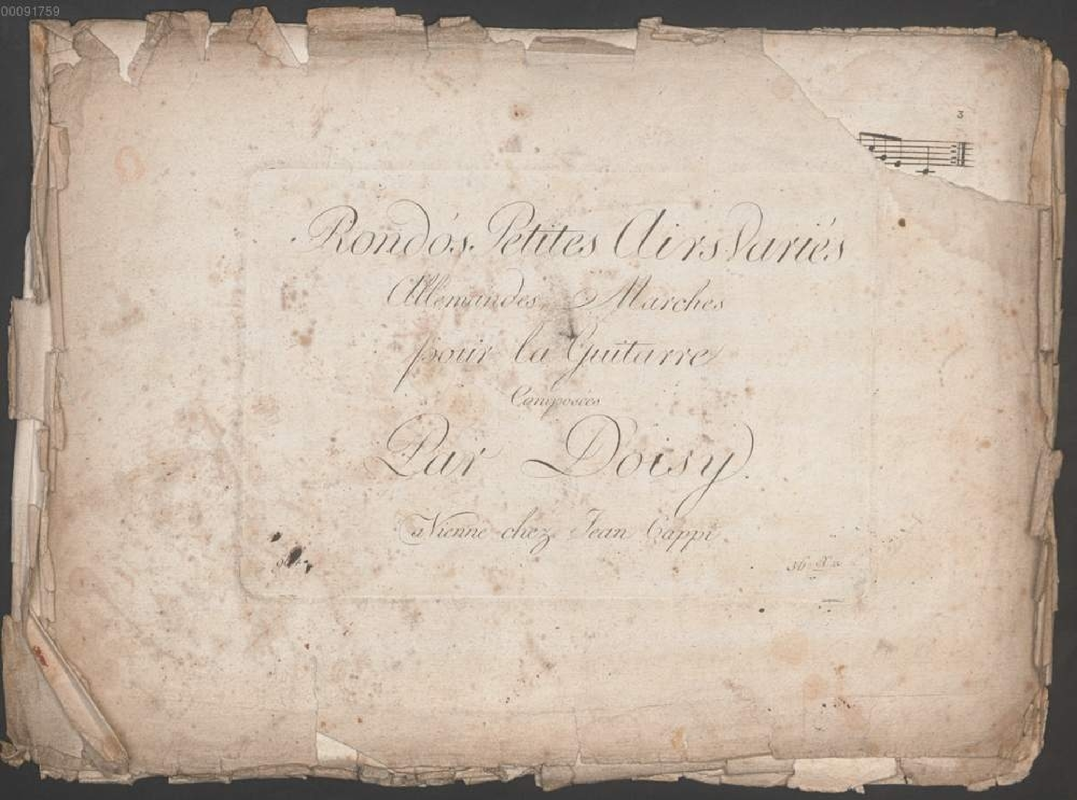 00091759
3
Rondós Petites Airs Variés
Allemandes Marches
pour la Guitarre
Composées
Par Doisy.
a Vienne chez Jean Cappi